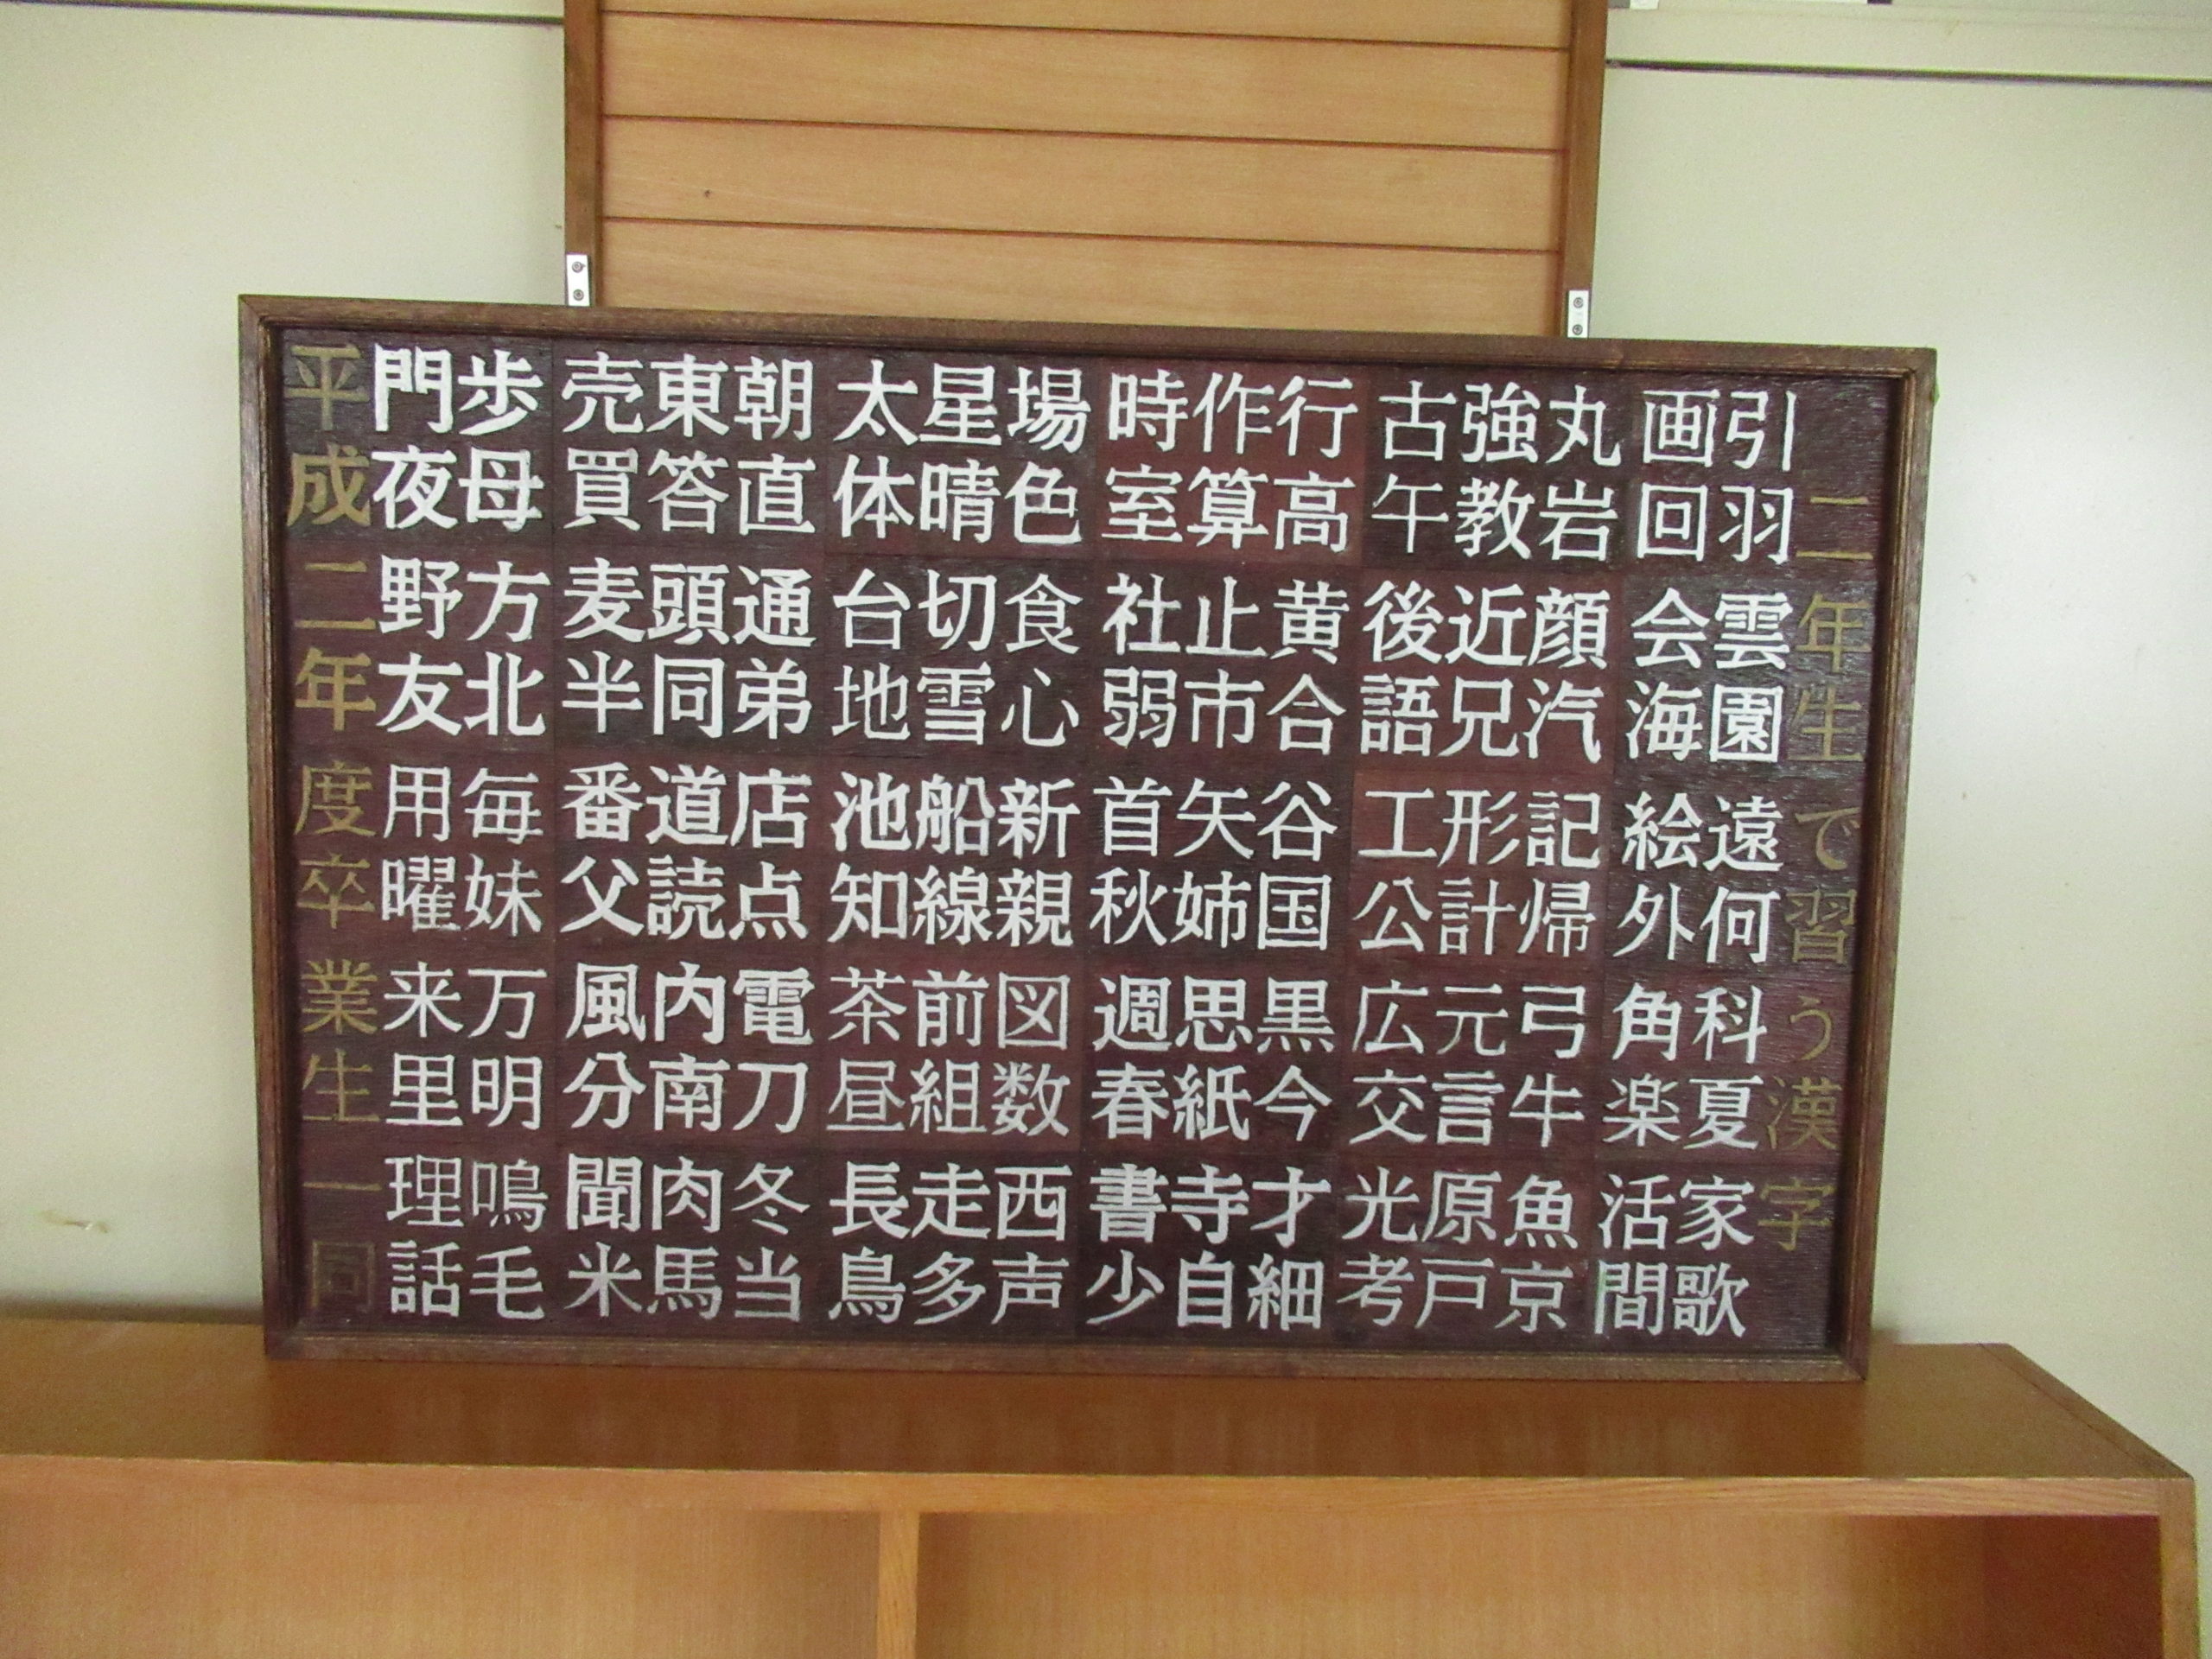 二年生で習う漢字
引羽雲園遠何科夏家歌
画回会海絵外角楽活間
丸岩顔汽記帰弓牛魚京
強教近兄形計元言原戸
古午後語工公広交光考
行高黄合谷国黒今才細
作算止市矢姉思紙寺自
時室社弱首秋週春書少
場色食心新親図数西声
星晴切雪船線前組走多
太体台地池知茶昼長鳥
朝直通弟店点電刀冬当
東答頭同道読内南肉馬
売買麦半番父風分聞米
歩母方北毎妹万明鳴毛
門夜野友用曜来里理話
平成二年度卒業生一同